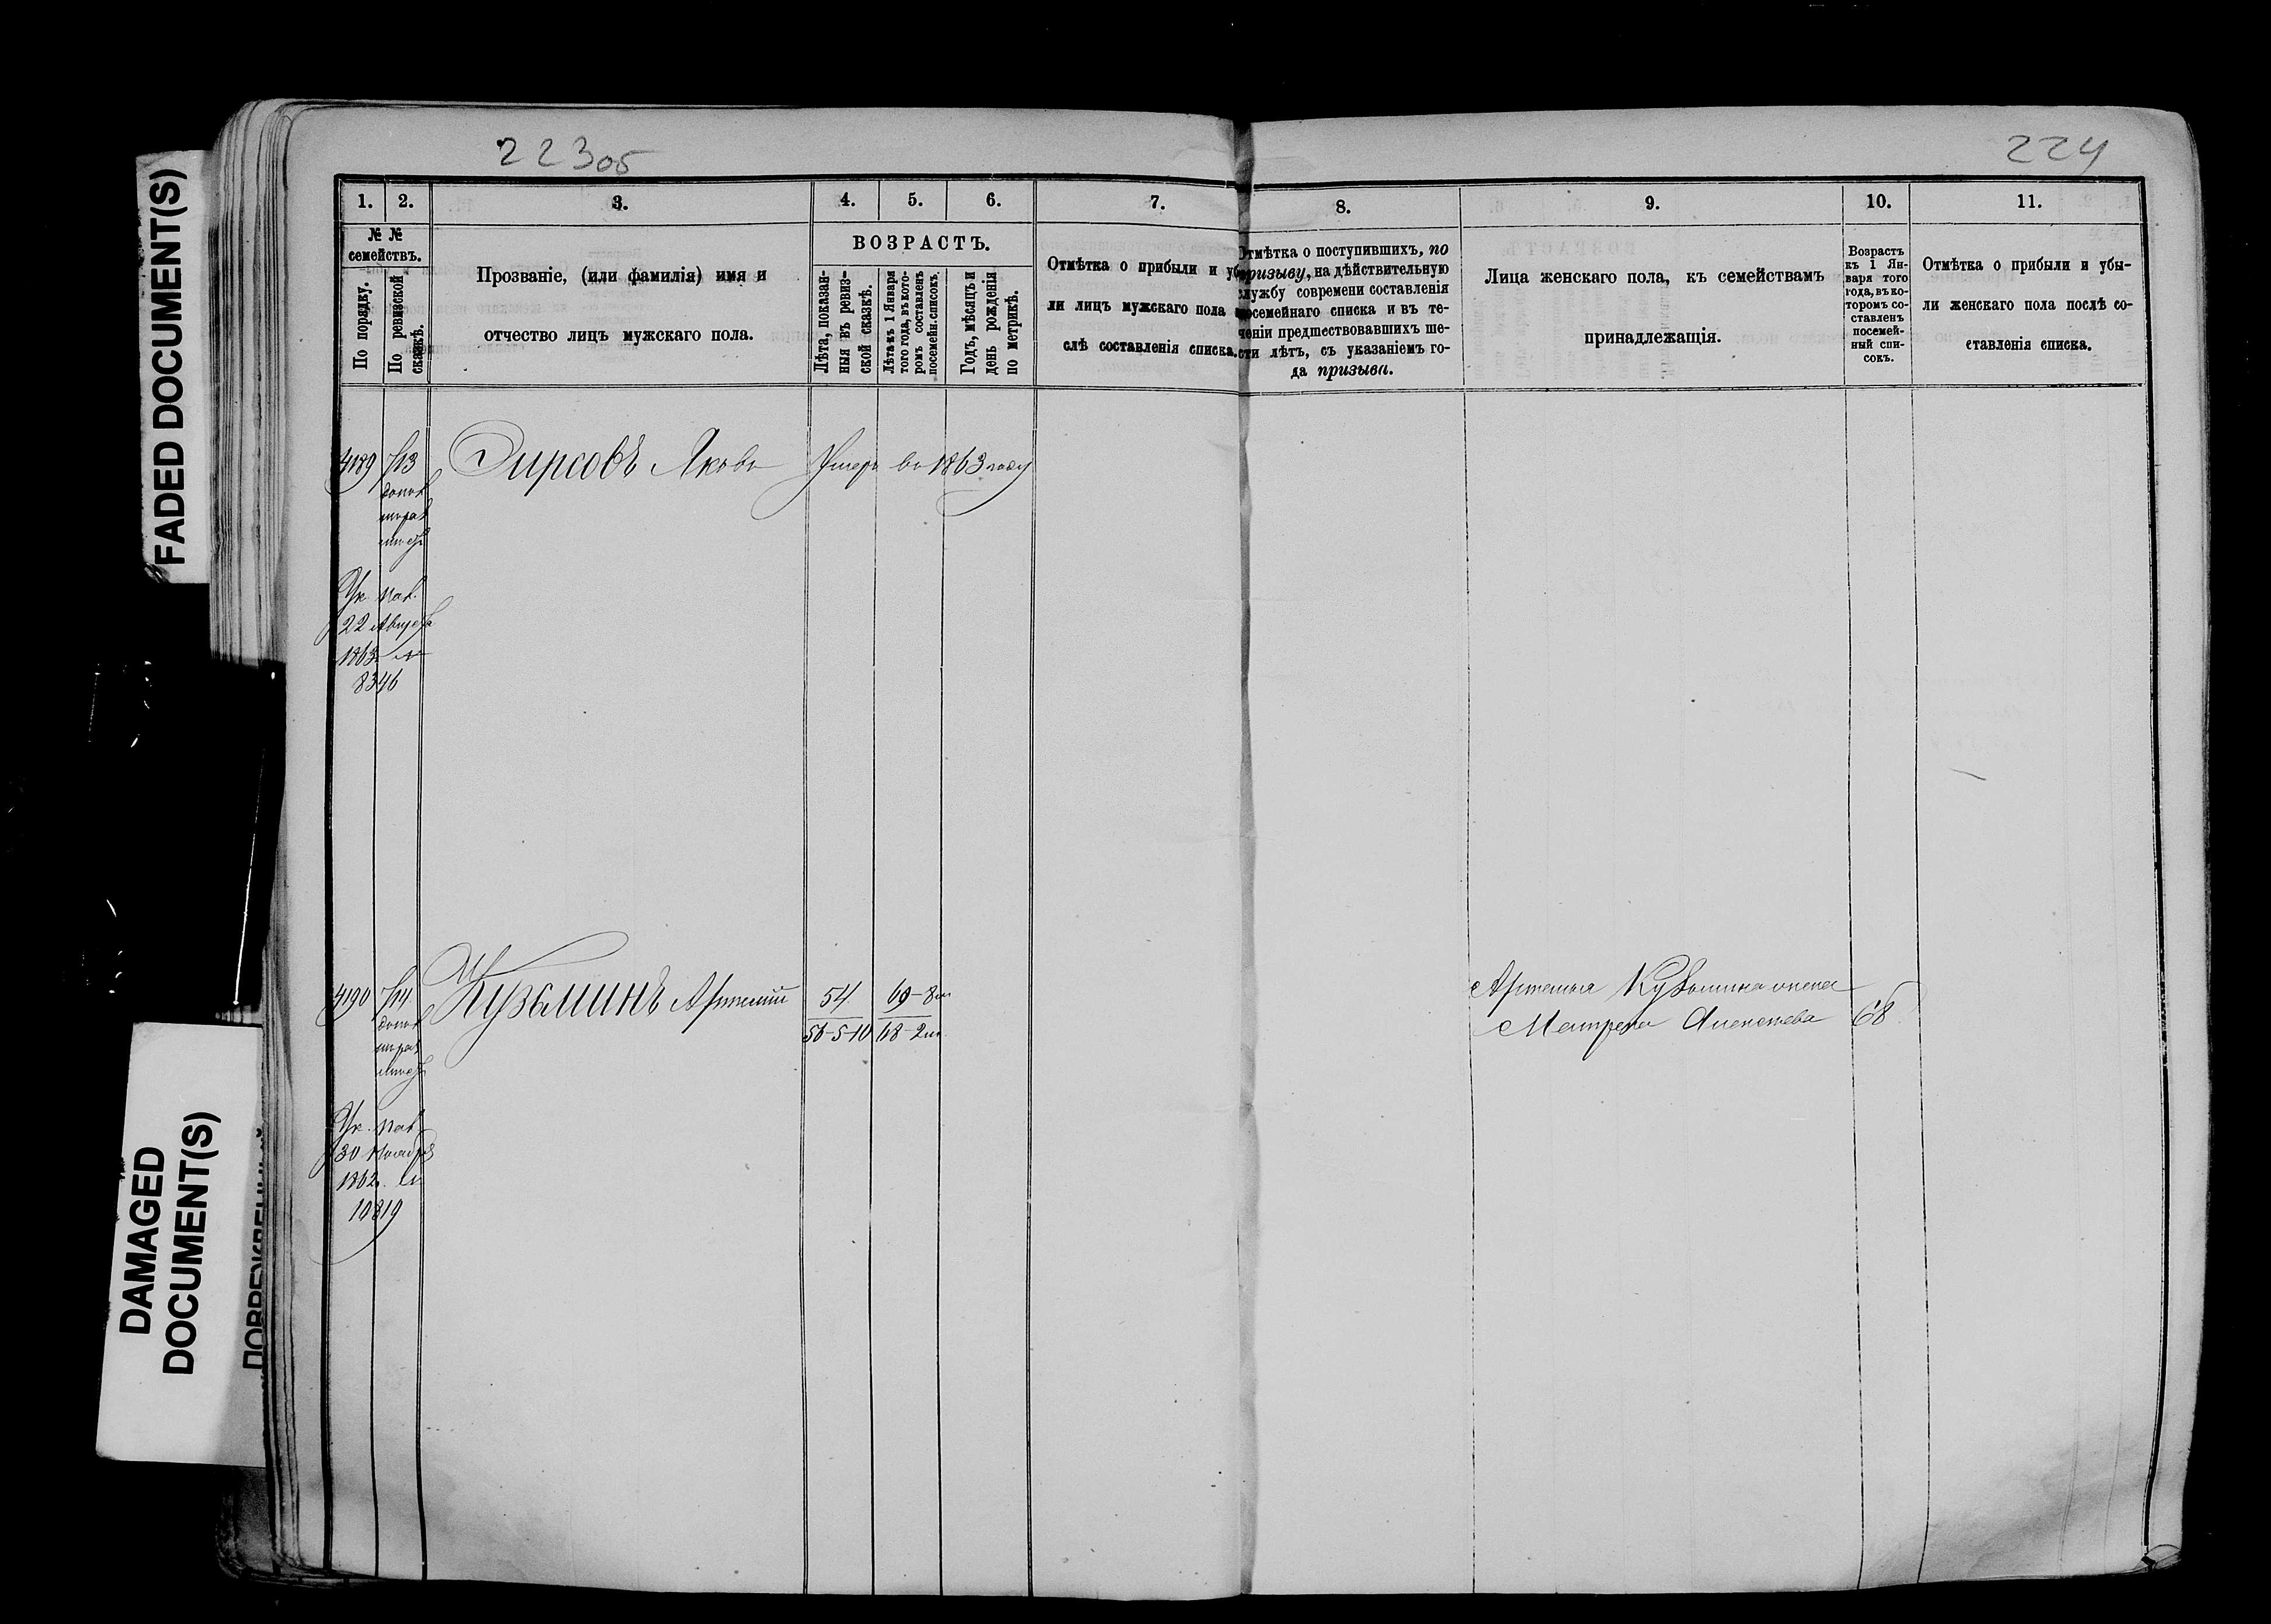 FADED DOCUMENT(S)
DAMAGED
DOCUMENT(S)
223об
224
1.
2.
3.
4.
5.
6.
7.
8.
9.
10.
11.
№ №
семействъ.
По порядку.
По ревизской
сказкѣ.
Прозваніе, (или фамилія) имя и
отчество лицъ мужскаго пола.
ВОЗРАСТЪ.
Лѣта, показан-
ныя въ ревиз-
ской сказкѣ.
Лѣта къ 1 Января
того года, въ кото-
ромъ составленъ
посемейн. списокъ.
Годъ, мѣсяцъ и
день рожденія
по метрикѣ.
Отмѣтка о прибыли и убы-
ли лицъ мужскаго пола
слѣ составленія списка.
Отмѣтка о поступившихъ, по
призыву, на дѣйствительную
службу современи составленія
посемейнаго списка и въ те-
ченіи предшествовавшихъ ше-
сти лѣтъ, съ указаніемъ го-
да призыва.
Лица женскаго пола, къ семействамъ
принадлежащія.
Возрастъ
къ 1 Ян-
варя того
года, въ ко-
торомъ со-
ставленъ
посемей-
ный спи-
сокъ.
Отмѣтка о прибыли и убы-
ли женскаго пола послѣ со-
ставленія списка.
4189 713 Яковъ Умеръ въ 1863 году
Ук. пал.
22 Августа
1863
8346
4190 714 Кузьминъ Артемій 54 69-8м
56-5-10 68-2м
Ук. пал.
30 Ноября
1862
10819
Артемья Кузьмина жена
Матрена Алексѣева 68